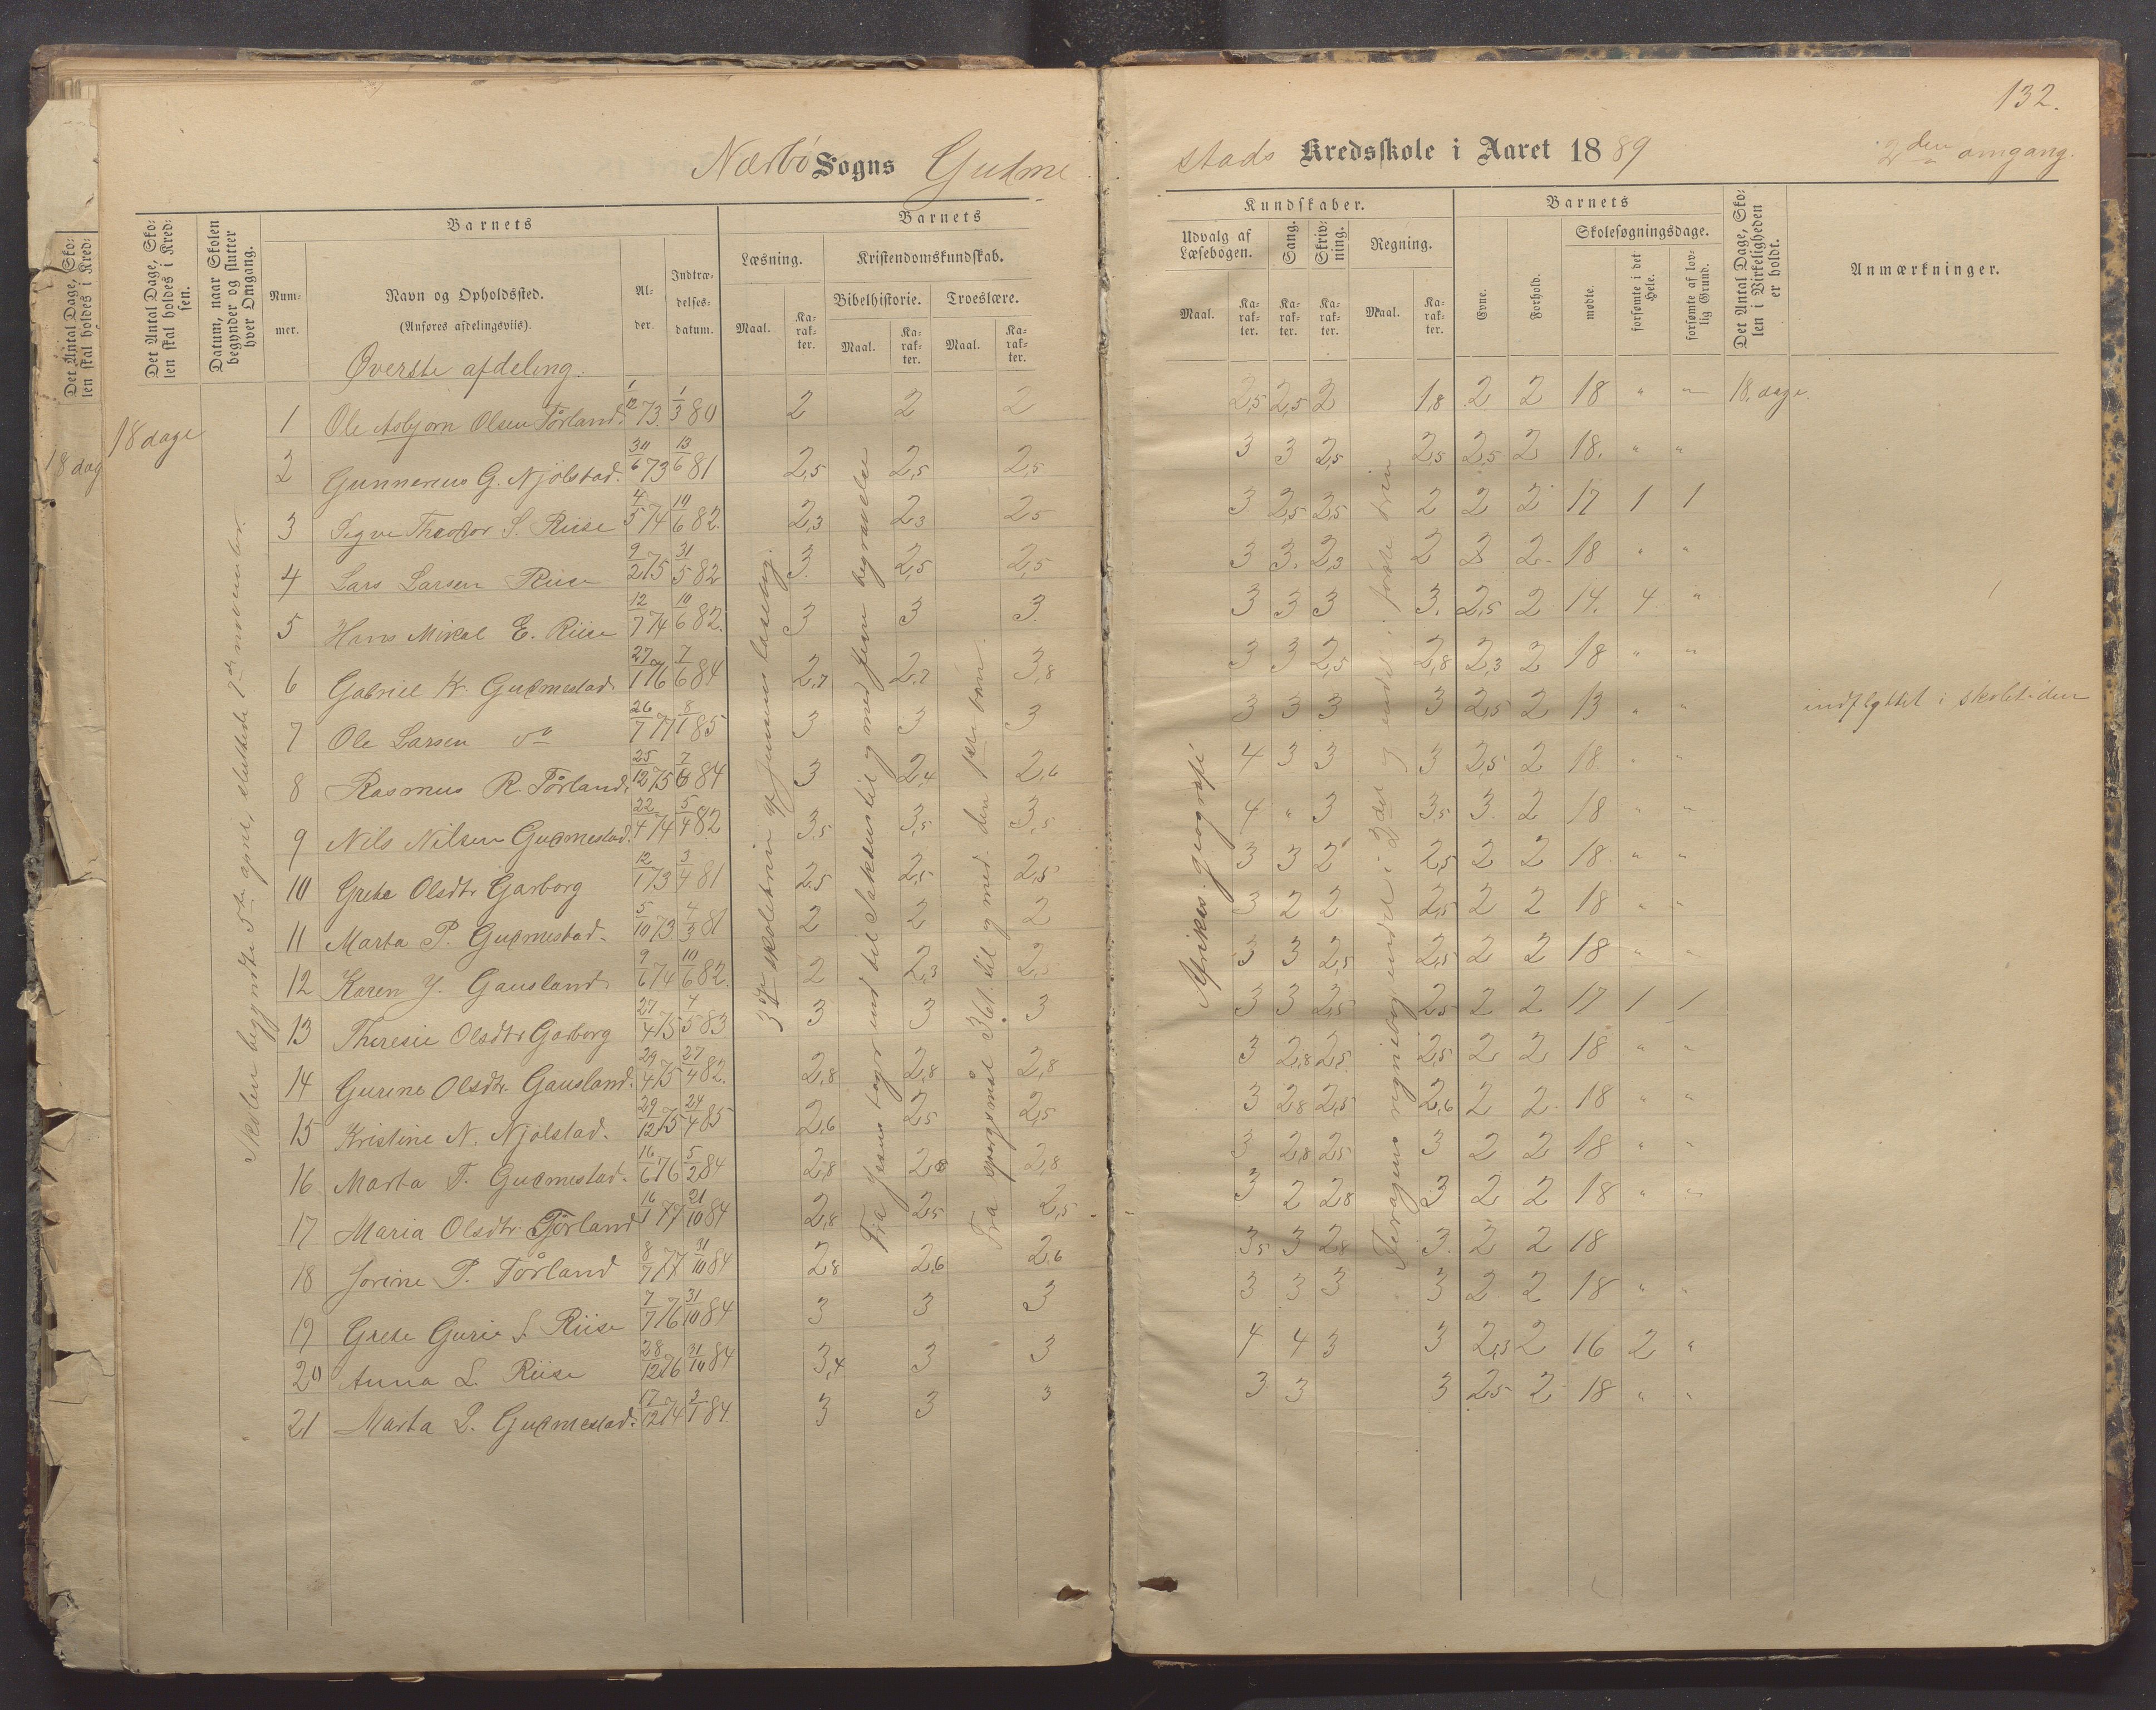 132.
Nærbø Sogns Gudme
stads Kredsskole i Aaret 1889
2den omgang.
Det Antal Dage, Sko-
len skal holdes i Kred-
Det Antal Dage, Sko-
len skal holdes i Kred-
sen.
Datum, naar Skolen
begynder og slutter
hver Omgang.
Barnets
Num-
mer.
Navn og Opholdssted.
(Anføres afdelingsviis).
Al-
der.
Indtræ-
delses-
datum.
Barnets
Læsning.
Kristendomskundskab.
Maal.
Ka-
rak-
ter.
Bibelhistorie.
Troeslære.
Maal.
Ka-
rak-
ter.
Maal.
Ka-
rak-
ter.
Kundskaber.
Udvalg af
Læsebogen.
Sang.
Skriv-
ning.
Regning.
Maal.
Ka-
rak-
ter.
Ka-
rak-
ter.
Ka-
rak-
ter.
Maal.
Ka-
rak-
ter.
Barnets
Evne.
Forhold.
Skolesøgningsdage.
mødte.
forsømte i det
Hele.
forsømte af lov-
lig Grund.
Det Antal Dage, Sko-
len i Virkeligheden
er holdt.
Anmærkninger.
Øverste afdeling.
18 dage
18 dag
Skolen begyndte 5te april, sluttede 1ste november.
3die skoletrin af Jensens læsebog.
Fra Jesus tager ind til Sakkeus til og med Jesu begravelse
Fra spørgsmål 361 til og med den 1ste bøn
Afrikas geografi
1 Ole Asbjørn Olsen Törland. 1/12 73. 1/3 80 2 2 2 2,5 2,5 2 1,8 2 2 18 " " 18 dage.
2 Gunnerius G. Njölstad. 30/6 73 13/6 81 2,5 2,5 2,5 3 3 2,5 2,5 2,5 2 18. " "
3 Sigve Theodor S. Riise 4/5 74 10/6 82. 2,3 2,3 2,5 3 2,5 2,5 2 2 2 17 1 1
4 Lars Larsen Riise 9/2 75 31/5 82 3. 2,5 2,5 3 3. 2,3 2 2 2 18 " "
5 Hans Mikal E. Riise 12/7 74 10/6 82. 3 3 3 3 3 3 3. 2,5 2 14. 4 "
6 Gabriel K. Gudmestad. 27/1 76 7/6 84 2,7 2,7 3,8 3 3 2,5 2,8 2,3 2 18 " "
7 Ole Larsen do 26/7 77 8/1 85 3 3 3 3 3 3 3 2,5 2 13 " " indflyttet i skoletiden
8 Rasmus R. Törland. 25/12 75 7/6 84 3 2,4 2,6 4 3 3 3 2,5 2 18. " "
9 Nils Nilsen Gudmestad. 22/4 74 5/4 82 3,5 3,5 3,5 4 " 3 3,5 3. 2 18 " "
10 Grete Olsdtr Garborg 12/1 73 3/4 81 2,5 2,5 2,5 3 3 2 2,5 2 2 18 " "
11 Marta P. Gudmestad. 5/10 73 4/3 81 2 2 2 3 2 2 2,5 2 2 18 " "
12 Karen J. Gausland 9/6 74 10/6 82. 2 2,3 2,5 3 3 2,5 2,5 2 2 18 " "
13 Theresie Olsdtr Garborg 27/4 75 4/5 83 3 3 3 3 3 2,5 2,5 2 2 17 1 1
14 Gurine Olsdtr. Gausland. 29/4 75 27/4 82. 2,8 2,8 2,8 3 2,8 2,5 2,5 2 2 18 " "
15 Kristine N. Njölstad. 29/12 75 24/4 85 2,6 2,5 2,5 3 2,8 2,5 2,6 2 2 18 " "
16 Marta T. Gudmestad. 16/6 76 5/2 84 2,8 2,8 2,8 3 2,8 2,5 3 2 2 18 " "
17 Maria Olsdtr. Törland 16/1 77 21/10 84 2,8 2,5 2,5 3 2 2,8 3 2 2 18 " "
18 Jorine P. Törland 8/7 77 31/10 84 2,8 2,6 2,6 3,5 3 2,8 3. 2 2 18
19 Grete Gurie S. Riise 7/7 76 31/10 84 3 3 3 3 3 3 3 2 2 18 " "
20 Anna L. Riise 28/12 76 31/10 84 3,4 3 3 4 4 3 3 2,3 2 16 2 "
21 Marta L. Gudmestad. 17/12 74 3/1 84. 3 3 3 3 3 3 2,5 2 18 " "